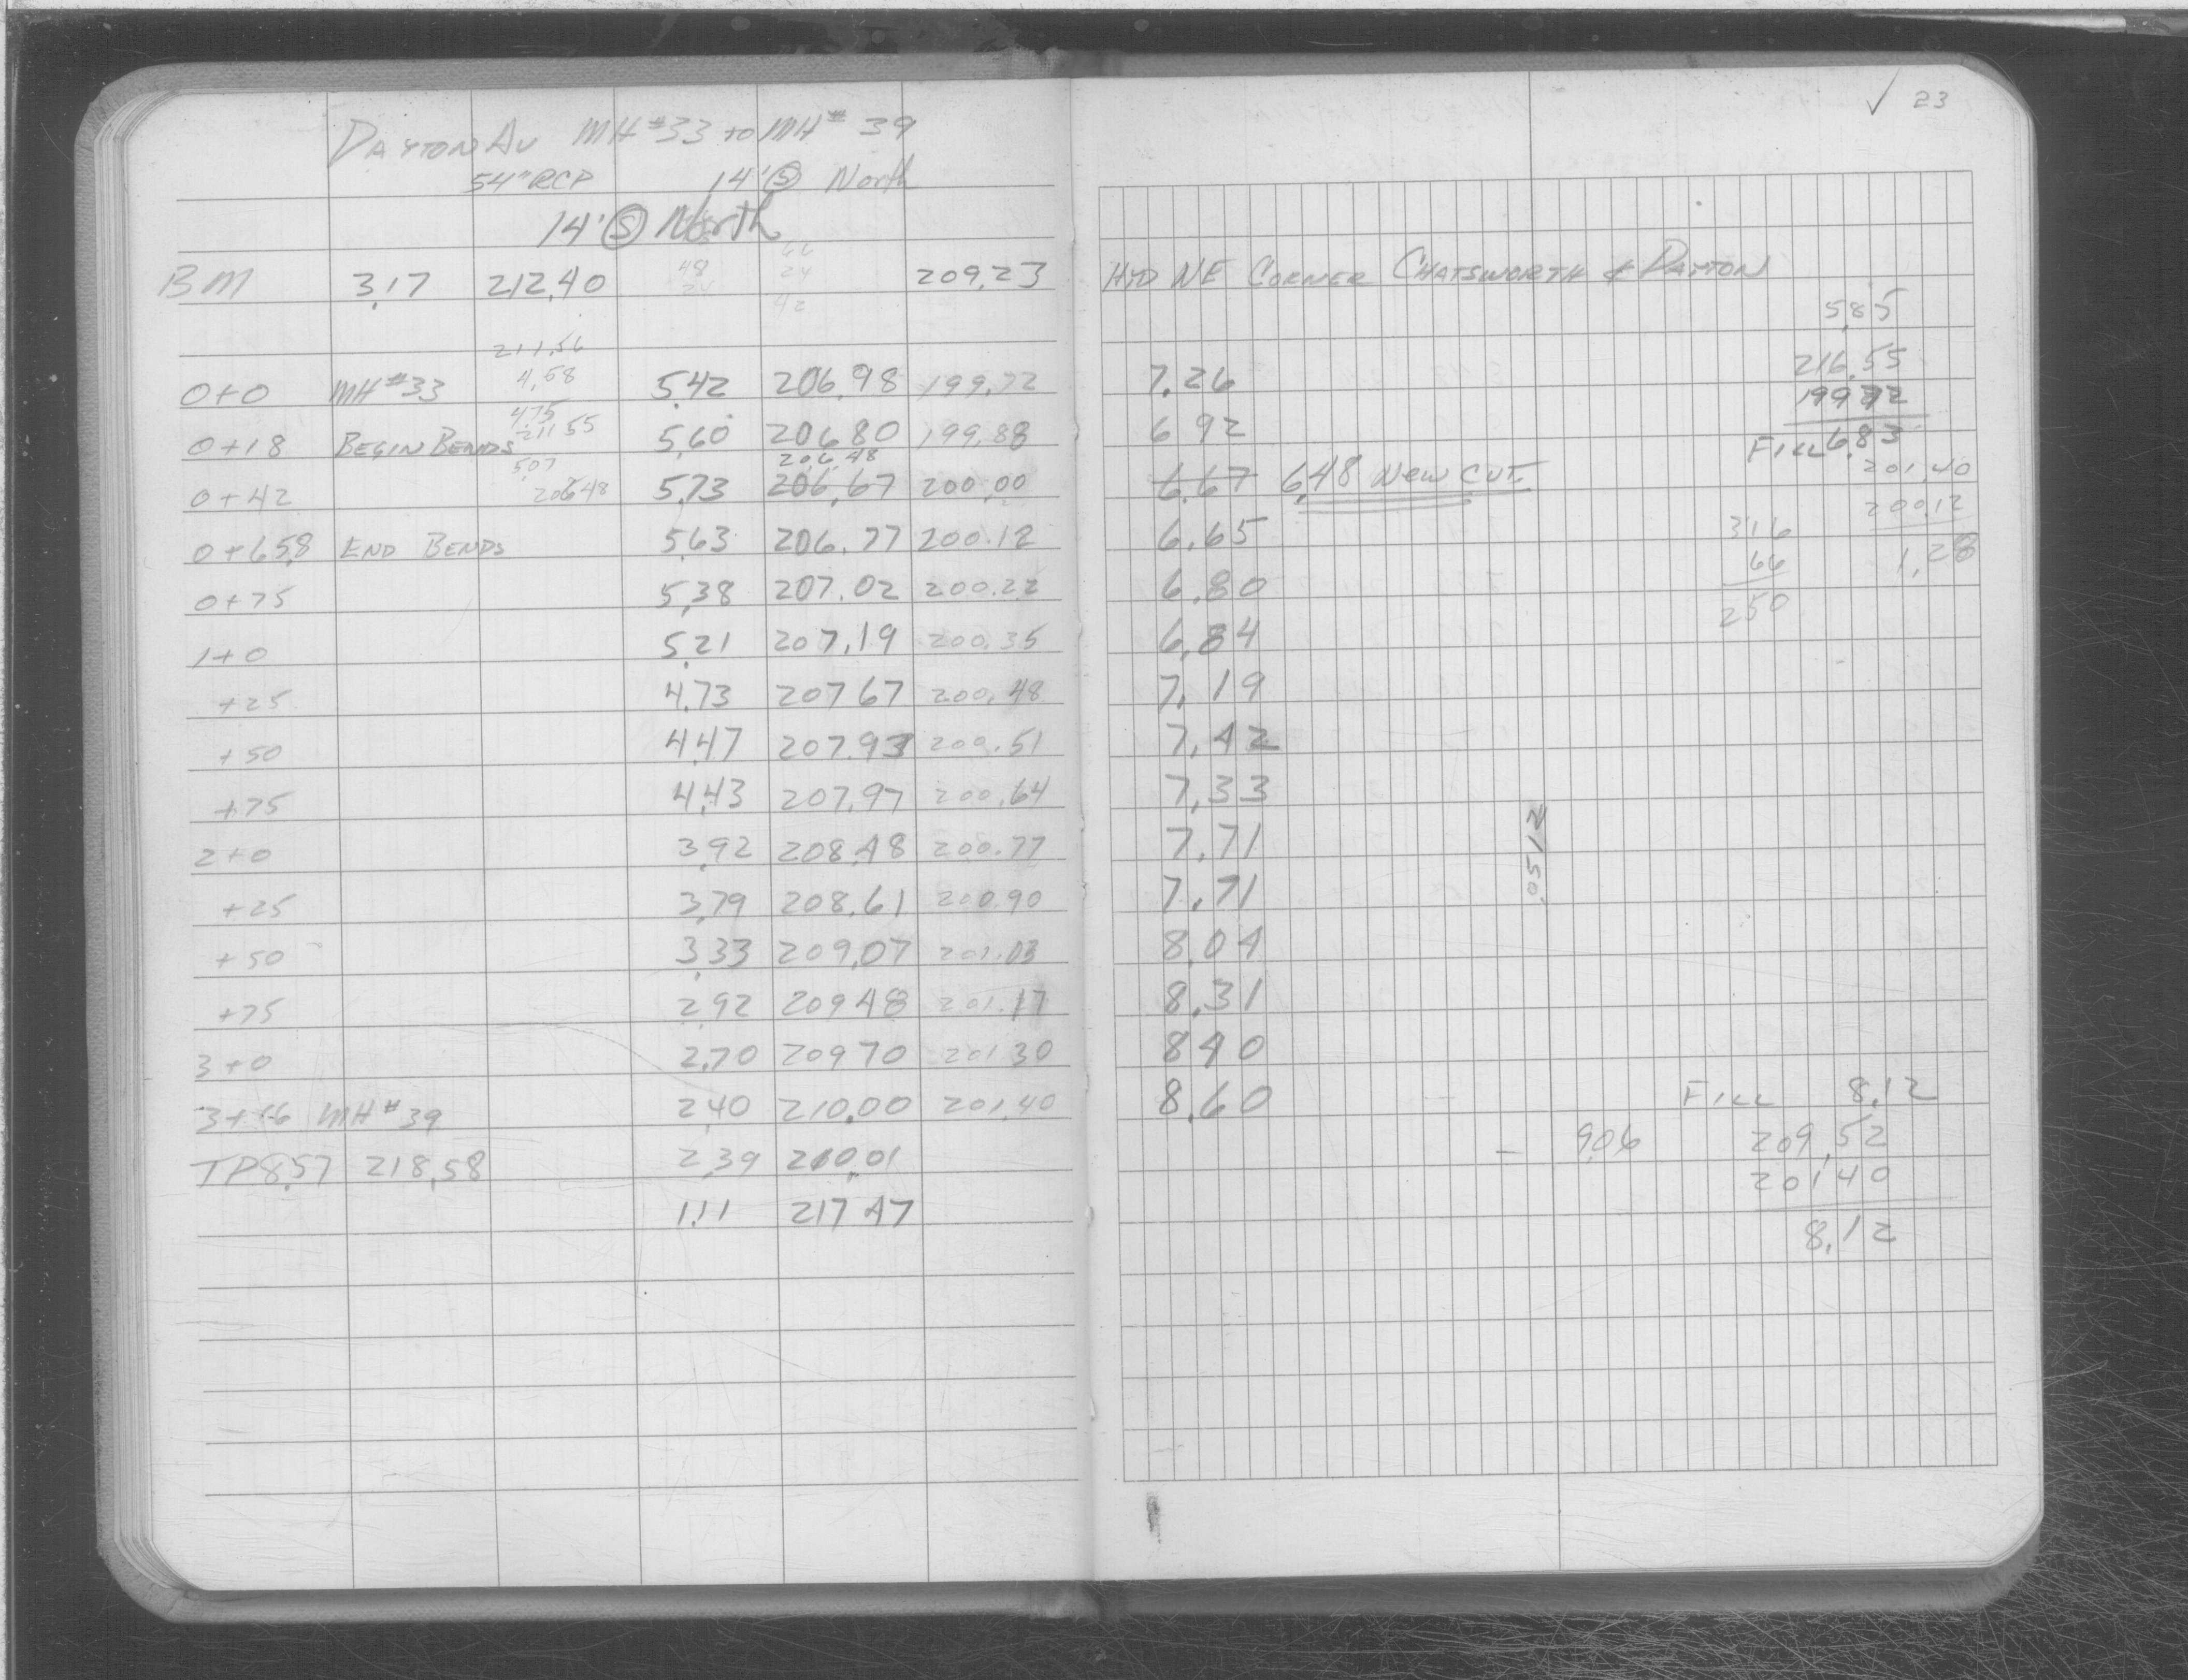 ✓ 23
DAYTON AV MH#33 TO MH# 39
54" RCP 14' Ⓢ North
14' Ⓢ North
BM 3.17 212.40 209.23 HYD NE CORNER CHATSWORTH & DAYTON
48 24
24 42
5.85
211.56
0+0 MH#33 4.58 5.42 206.98 199.72 7.26 216.55
4.75 199.72
0+18 BEGIN BENDS 211.55 5.60 206.80 199.88 6.92 FILL 6.83
5.07 206.48
0+42 206.48 5.73 206.67 200.00 6.67 6.48 NEW CUT 201.40
200.12
0+65.8 END BENDS 5.63 206.77 200.12 6.65 316 1.28
66
0+75 5.38 207.02 200.22 6.80 250
1+0 5.21 207.19 200.35 6.84
+25 4.73 207.67 200.48 7.19
+50 4.47 207.93 200.51 7.42
+75 4.43 207.97 200.64 7.33
2+0 3.92 208.48 200.77 7.71 .0512
+25 3.79 208.61 200.90 7.71
+50 3.33 209.07 201.03 8.04
+75 2.92 209.48 201.17 8.31
3+0 2.70 209.70 201.30 8.40
3+16 MH#39 2.40 210.00 201.40 8.60 FILL 8.12
TP 8.57 218.58 2.39 210.01 – 9.06 209.52
201.40
1.11 217.47 8.12